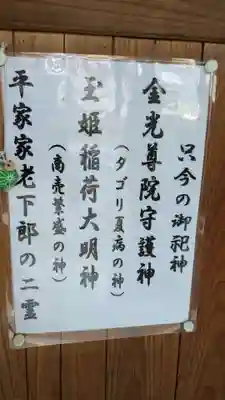 只今の御祀神
金光尊院守護神
(タゴリ夏病の神)
玉姫稲荷大明神
(商売繁盛の神)
平家家老下郎の二霊